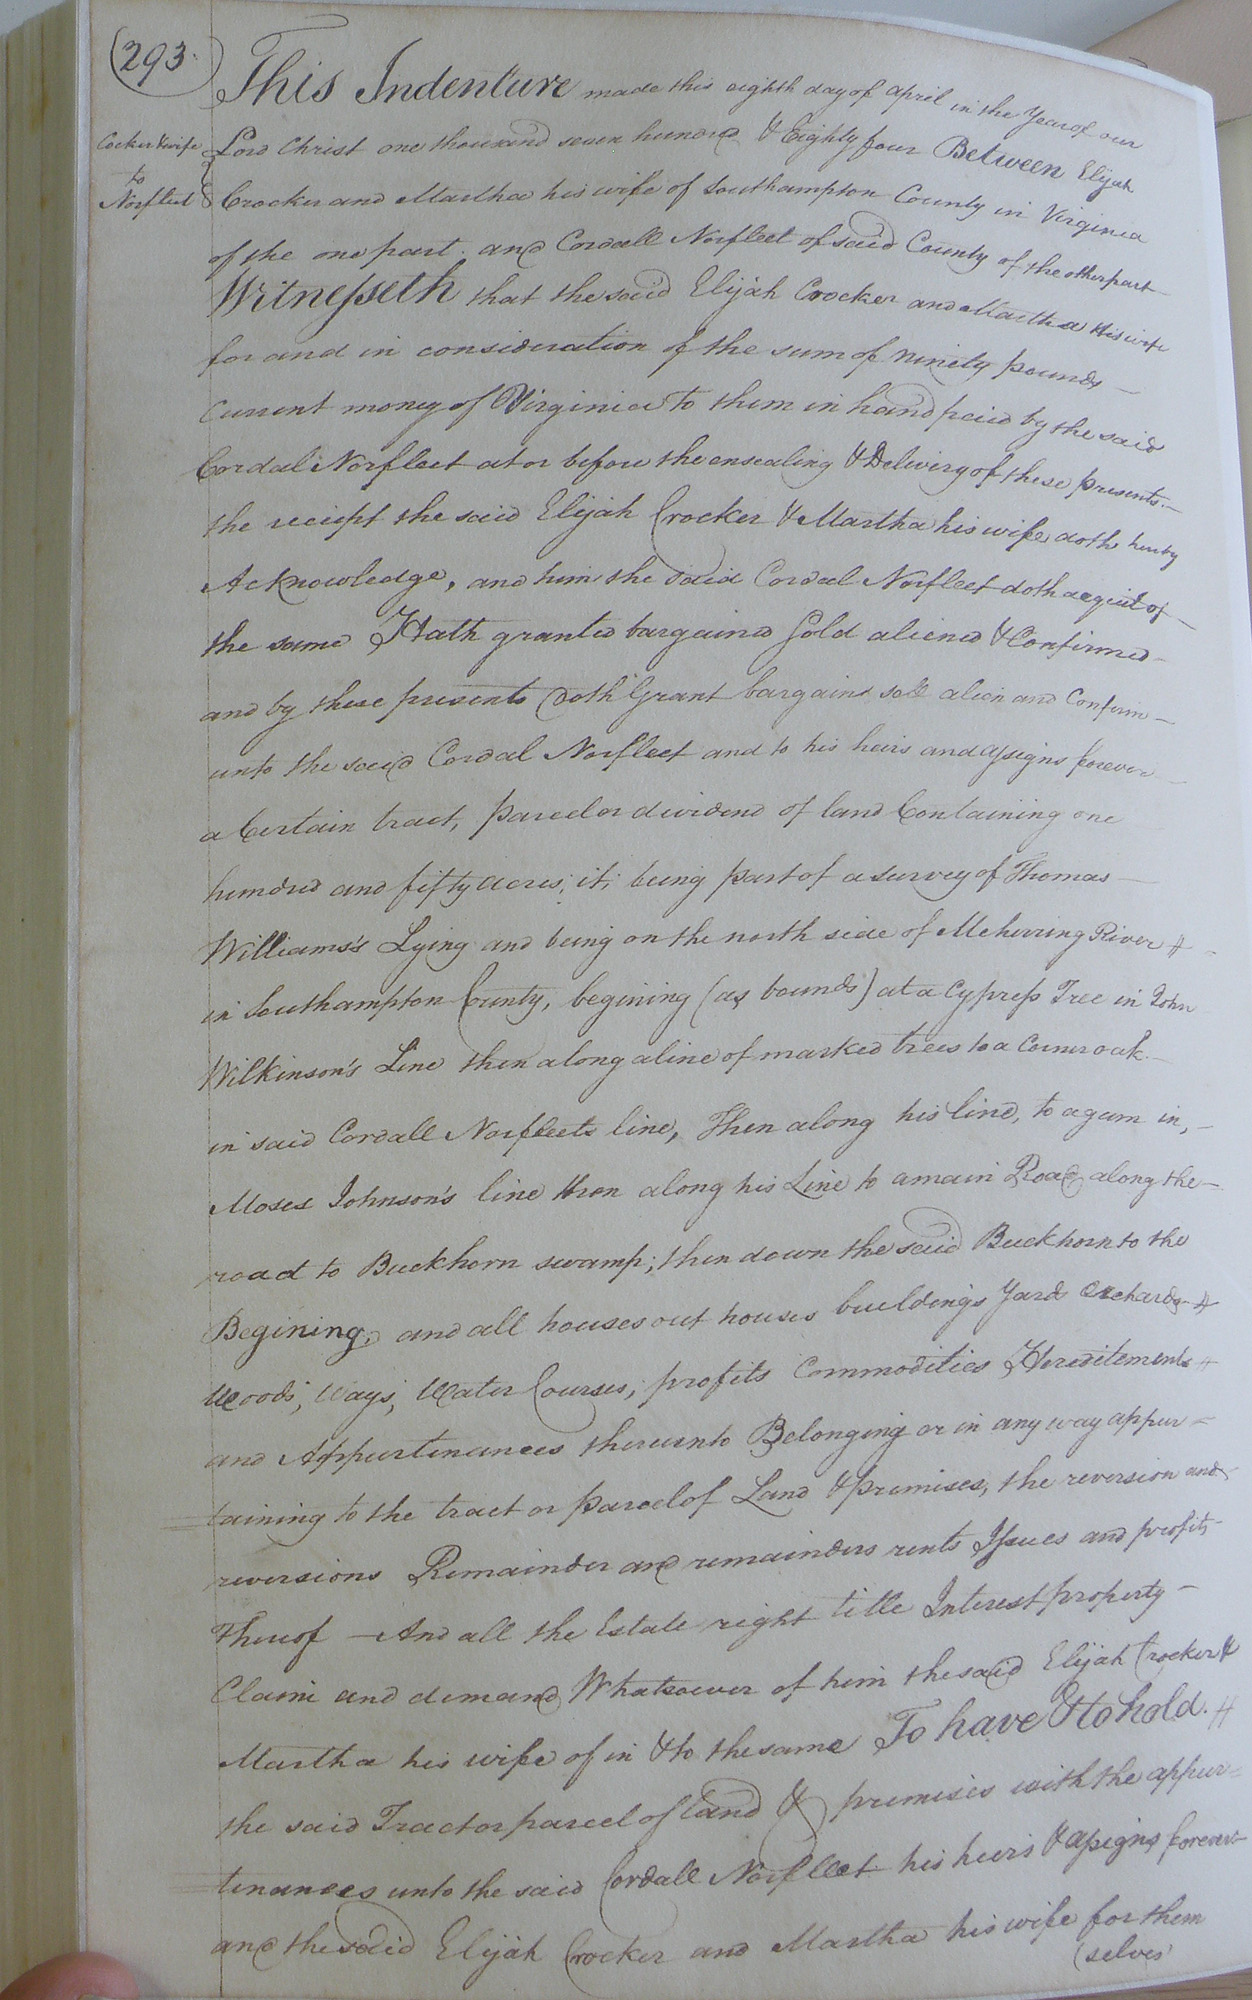 (293.)
This Indenture made this eighth day of April in the Year of our
Cocker & wife
to
Norfleet
Lord Christ one thousand seven hundred & Eighty four Between Elijah
Crocker and Martha his wife of Southampton County in Virginia
of the one part. and Cordall Norfleet of said County of the other part
Witnesseth that the said Elijah Crocker and Martha His wife
for and in consideration of the sum of ninety pounds —
Current money of Virginia to them in hand paid by the said
Cordal Norfleet at or before the ensealing & Delivery of these presents. —
the reciept the said Elijah Crocker & Martha his wife doth hereby
Acknowledge, and him the said Cordal Norfleet doth acquit of —
the same Hath granted bargained Sold aliened & Confirmed —
and by these presents doth Grant bargain sell alien and Confirm —
unto the said Cordal Norfleet and to his heirs and assigns forever —
a Certain tract, parcel or dividend of land Containing one
hundred and fifty acres; it; being part of a survey of Thomas —
Williams's Lying and being on the north side of Meherring River
in Southampton County, begining (as bounds) at a Cypress Tree in John
Wilkinson's Line then along a line of marked trees to a Corner oak. —
in said Cordall Norfleets line, Then along his line, to a gum in, —
Moses Johnson's line then along his Line to a main Road along the —
road to Buckhorn swamp; then down the said Buckhorn to the
Begining, and all houses out houses buildings Yards Orchards
Woods, Ways, Water Courses, profits Commodities Hereditements
and Appurtenances thereunto Belonging or in any way appur =
= taining to the tract or parcel of Land & premises, the reversion and
reversions Remainder and remainders rents Issues and profits
Thereof — And all the Estate right title Interest property —
Claim and demand Whatsoever of him the said Elijah Crocker &
Martha his wife of in & to the same To have & to hold.
the said Tract or parcel of land & premises with the appur =
= tenances unto the said Cordall Norfleet his heirs & assigns forever
and the said Elijah Crocker and Martha his wife for them
(selves